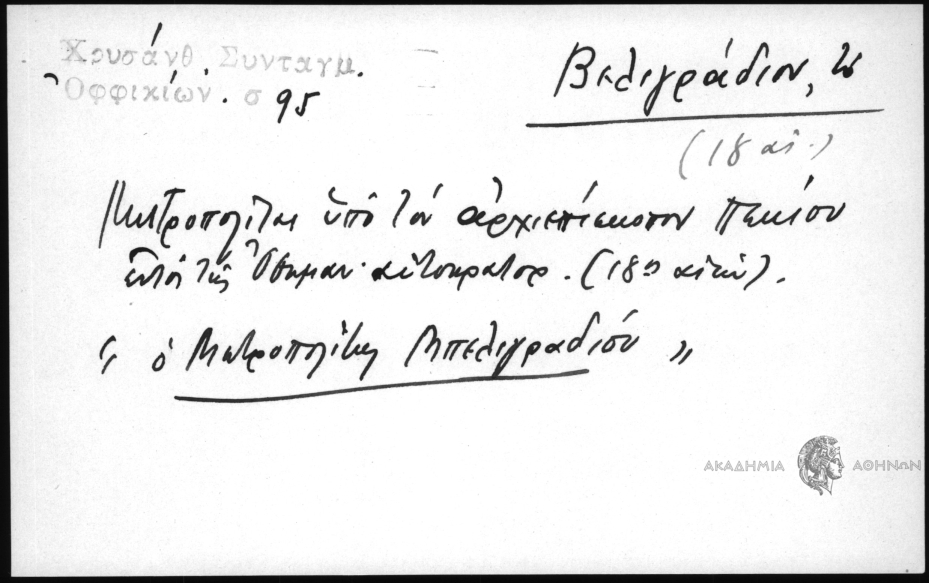 Χρυσάνθ. Συνταγμ.
Ὀφφικίων. σ 95
Βελιγράδιον, το
(18 αἰ.)
Μητροπολίτης ὑπὸ τὸν ἀρχιεπίσκοπον Πεκίου
ἐντὸς τῆς Ὀθωμαν. αὐτοκρατορ. (18ος αἰών).
" ὁ Μητροπολίτης Μπελιγραδίου "
ΑΚΑΔΗΜΙΑ ΑΘΗΝΩΝ